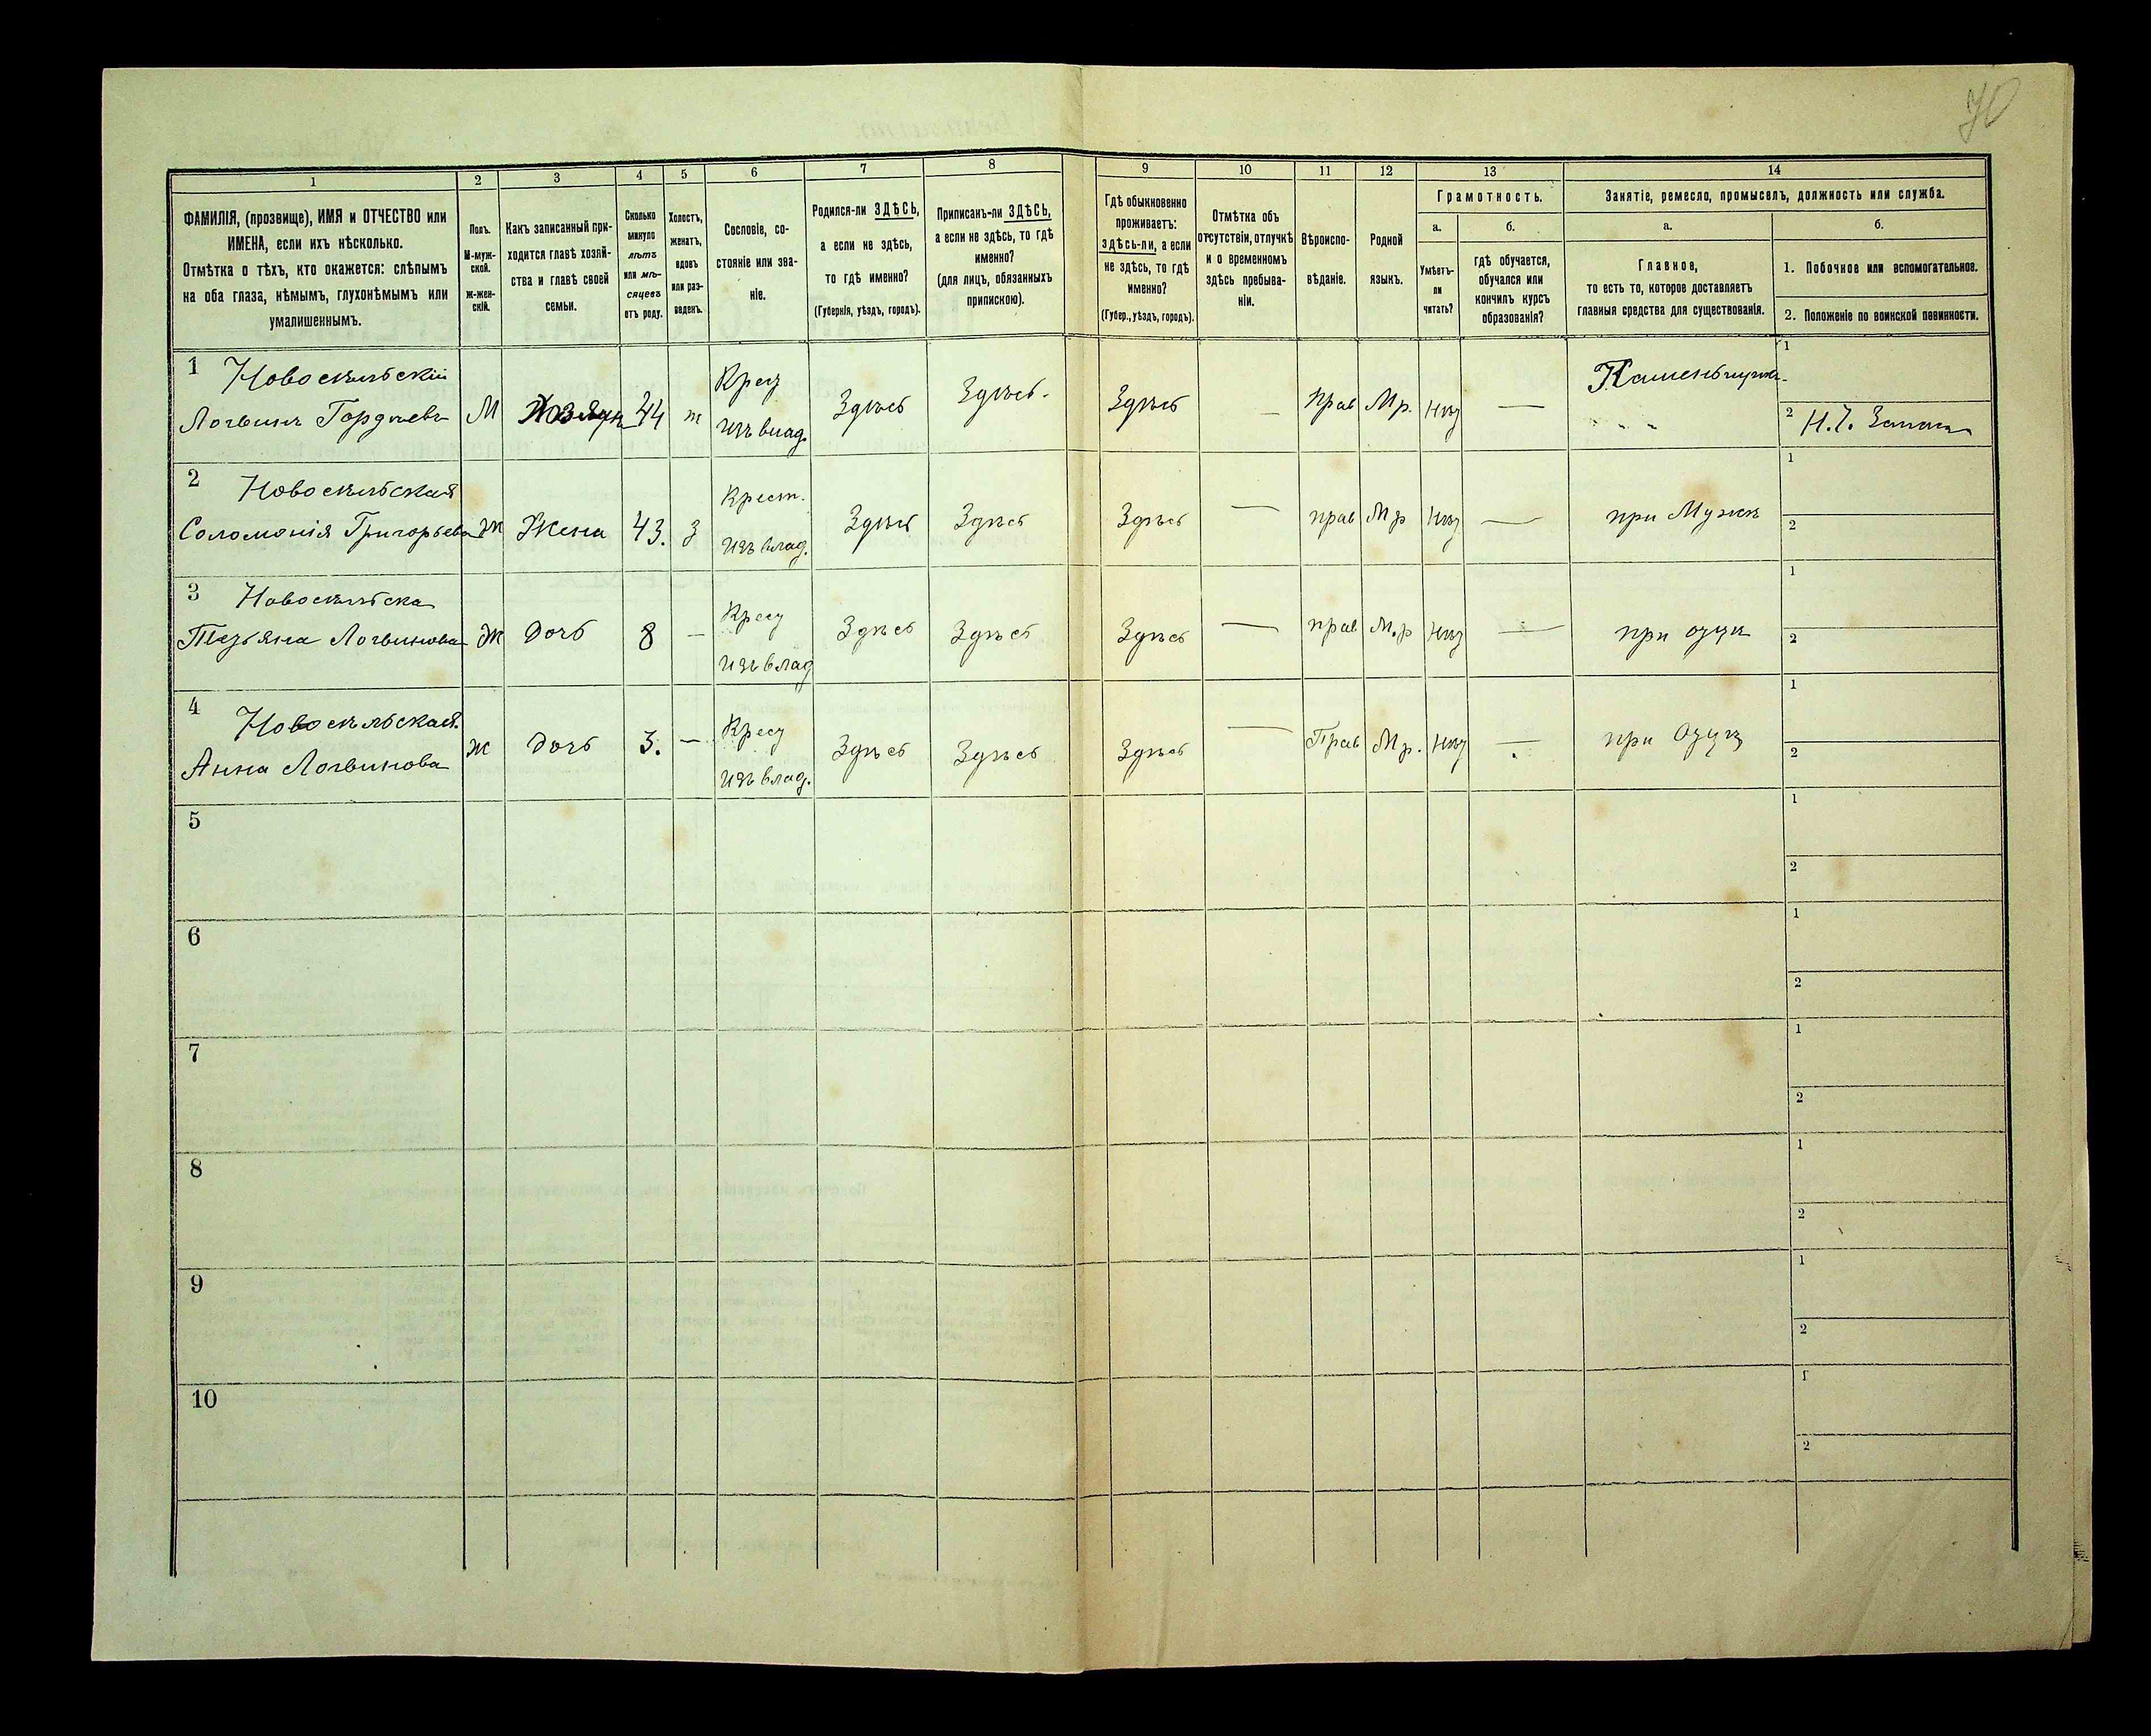 70
1 2 3 4 5 6 7 8 9 10 11 12 13 14
ФАМИЛІЯ, (прозвище), ИМЯ и ОТЧЕСТВО или
ИМЕНА, если ихъ нѣсколько.
Отмѣтка о тѣхъ, кто окажется: слѣпымъ
на оба глаза, нѣмымъ, глухонѣмымъ или
умалишеннымъ.
Полъ.
М-муж-
ской.
ж-жен-
скій.
Какъ записанный при-
ходится главѣ хозяй-
ства и главѣ своей
семьи.
Сколько
минуло
лѣтъ
или мѣ-
сяцевъ
отъ роду.
Холостъ,
женатъ,
вдовъ
или раз-
веденъ.
Сословіе, со-
стояніе или зва-
ніе.
Родился-ли ЗДѢСЬ,
а если не здѣсь,
то гдѣ именно?
(Губернія, уѣздъ, городъ).
Приписанъ-ли ЗДѢСЬ,
а если не здѣсь, то гдѣ
именно?
(для лицъ, обязанныхъ
припискою).
Гдѣ обыкновенно
проживаетъ:
здѣсь-ли, а если
не здѣсь, то гдѣ
именно?
(Губер., уѣздъ, городъ).
Отмѣтка объ
отсутствіи, отлучкѣ
и о временномъ
здѣсь пребыва-
ніи.
Вѣроиспо-
вѣданіе.
Родной
языкъ.
Грамотность.
а.
Умѣетъ-
ли
читать?
б.
гдѣ обучается,
обучался или
кончилъ курсъ
образованія?
Занятіе, ремесло, промыселъ, должность или служба.
а.
Главное,
то есть то, которое доставляетъ
главныя средства для существованія.
б.
1. Побочное или вспомогательное.
2. Положеніе по воинской повинности.
1 Новосѣльскій
Логвинъ Гордѣевъ М Хозяинъ 44 ж Крест изъ влад. Здѣсь Здѣсь. Здѣсь — Прав Мр. нѣт — Каменьщикъ 1
2 Н.Ч. Запаса
2 Новосѣльская
Соломонія Григорьева Ж Жена 43. з Крест. изъ влад. Здѣсь Здѣсь Здѣсь — прав Мр нѣт — при Мужѣ 1
2
3 Новосѣльска
Татьяна Логвинова Ж дочь 8 — Крест изъ влад Здѣсь Здѣсь Здѣсь — прав М.р нѣт — при отцѣ 1
2
4 Новосѣльская.
Анна Логвинова ж дочь 3. — Крест изъ влад. Здѣсь Здѣсь Здѣсь — Прав Мр. нѣт — при Отцѣ 1
2
5 1
2
6 1
2
7 1
2
8 1
2
9 1
2
10 1
2